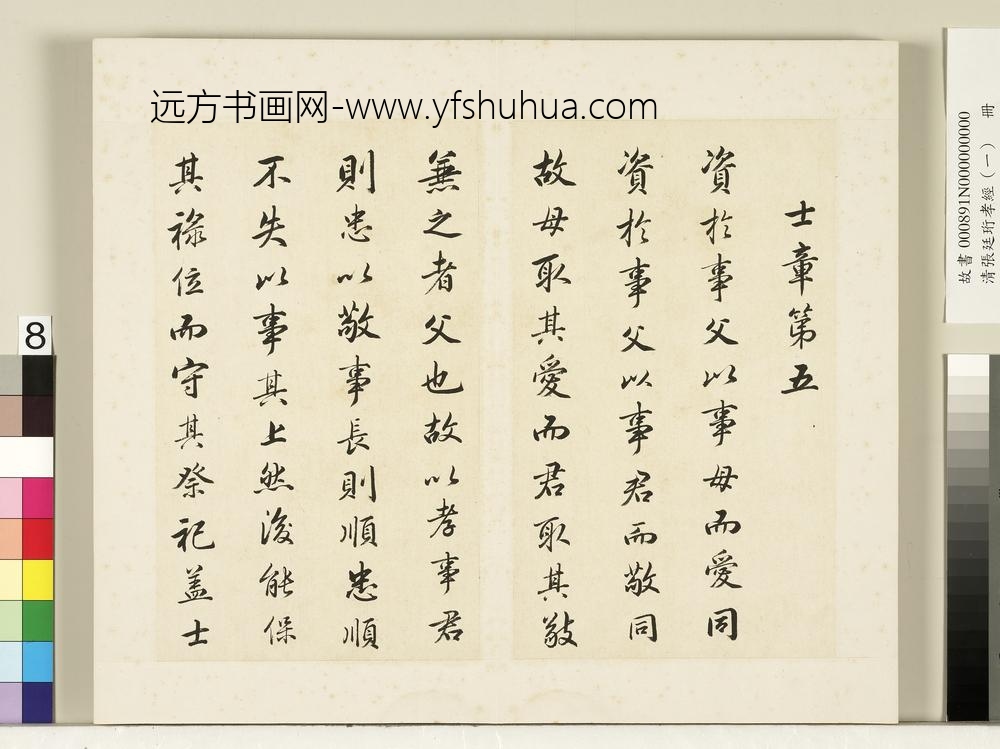 远方书画网-www.yfshuhua.com
士章第五
資於事父以事母而愛同
資於事父以事君而敬同
故母取其愛而君取其敬
兼之者父也故以孝事君
則忠以敬事長則順忠順
不失以事其上然後能保
其祿位而守其祭祀蓋士
故書000891N000000000
清張廷珩孝經(一) 冊
8